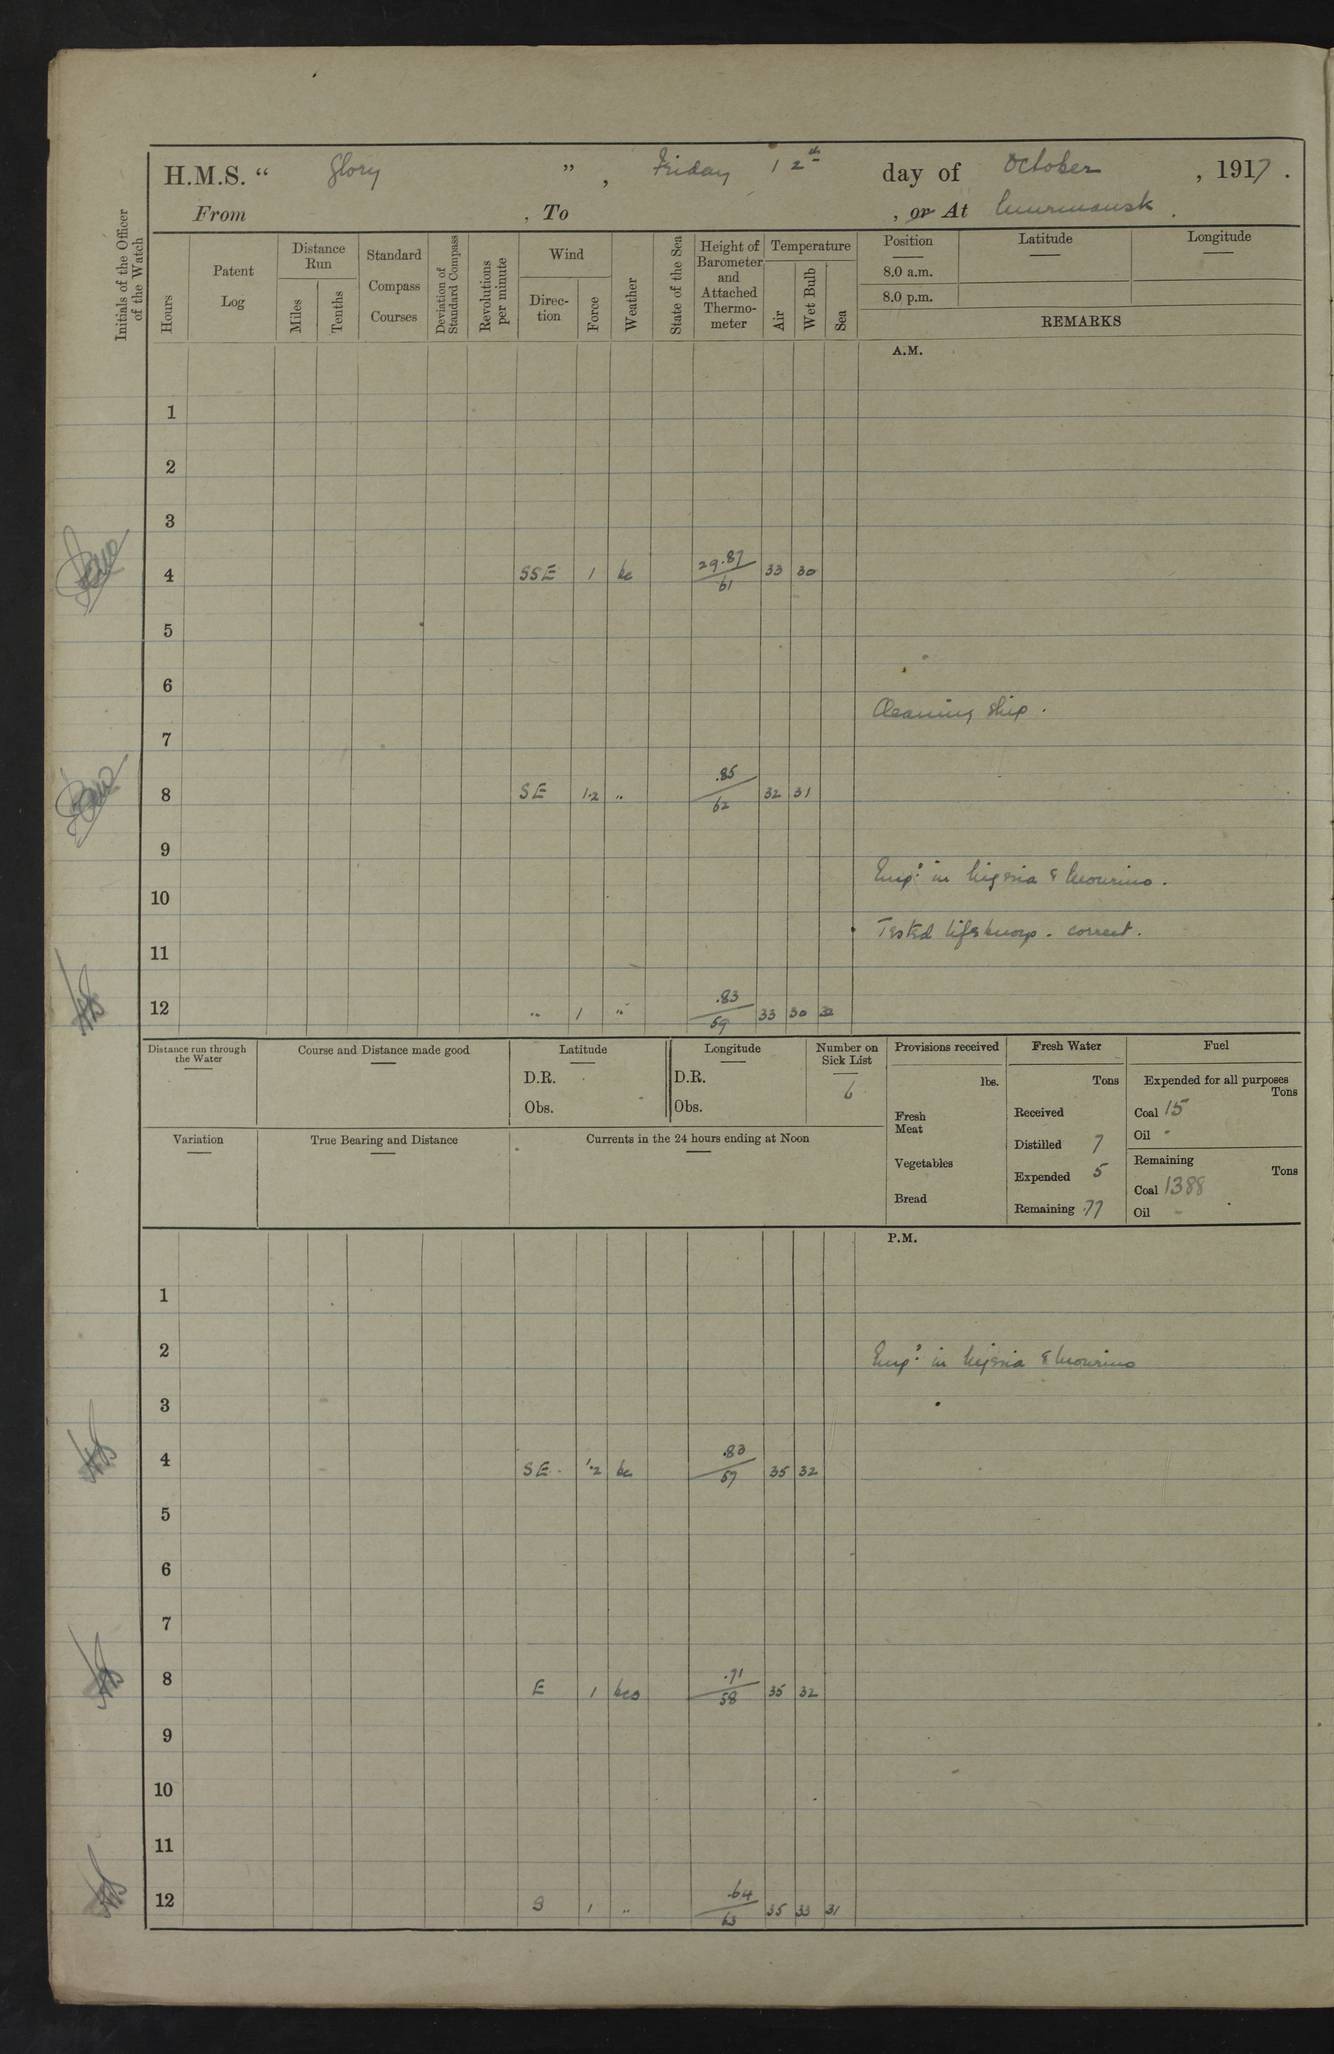 H.M.S. “ Glory ” , Friday 12th day of October , 1917 .
From , To , or At Murmansk .
Initials of the Officer of the Watch
Hours
Patent Log
Distance Run
Miles
Tenths
Standard Compass Courses
Deviation of Standard Compass
Revolutions per minute
Wind
Direc-tion
Force
Weather
State of the Sea
Height of Barometer and Attached Thermo-meter
Temperature
Air
Wet Bulb
Sea
Position
8.0 a.m.
8.0 p.m.
Latitude
Longitude
REMARKS
A.M.
1
2
3
4 SSE 1 bc 29.87/61 33 30
5
6
Cleaning ship .
7
8 SE 1.2 " .85/62 32 31
9
Emp: in & .
10
Tested lifebuoys . correct .
11
12 " 1 " .83/59 33 30 32
Distance run through the Water
Course and Distance made good
Latitude
D.R.
Obs.
Longitude
D.R.
Obs.
Number on Sick List
6
Provisions received
lbs.
Fresh Meat
Vegetables
Bread
Fresh Water
Tons
Received
Distilled 7
Expended 5
Remaining 77
Fuel
Expended for all purposes
Tons
Coal 15
Oil -
Remaining
Tons
Coal 1388
Oil -
Variation
True Bearing and Distance
Currents in the 24 hours ending at Noon
P.M.
1
2
Emp: in &
3
4 SE . 1.2 bc .83/57 35 32
5
6
7
8 E 1 bco .71/58 35 32
9
10
11
12 S 1 " .64/63 35 33 31